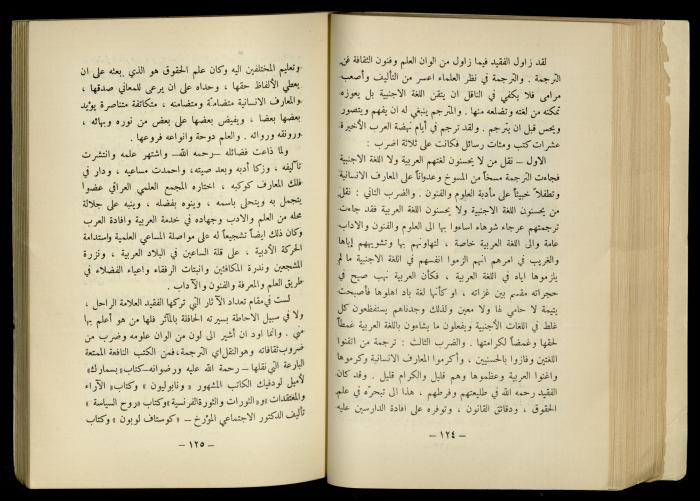 لقد زاول الفقيد فيما زاول من الوان العلم وفنون الثقافة فن
الترجمة . والترجمة في نظر العلماء اعسر من التأليف وأصعب
مرامى فلا يكفي في الناقل ان يتقن اللغة الاجنبية بل يعوزه
تمكنه من لغته وتضلعه منها . والمترجم ينبغي له ان يفهم ويتصور
ويحس قبل ان يترجم . ولقد ترجم في أيام نهضة العرب الأخيرة
عشرات كتب ومئات رسائل فكانت على ثلاثة اضرب :
الاول – نقل من لا يحسنون لغتهم العربية ولا اللغة الاجنبية
فجاءت الترجمة مسخاً من المسوخ وعدواناً على المعارف الانسانية
وتطفلاً خبيثاً على مأدبة العلوم والفنون . والضرب الثاني : نقل
من يحسنون اللغة الاجنبية ولا يحسنون اللغة العربية فقد جاءت
ترجمتهم عرجاء شوهاء اساءوا بها الى العلوم والفنون والاداب
عامة والى اللغة العربية خاصة ، لتهاونهم بها وتشويههم إياها
والغريب في امرهم انهم الزموا انفسهم في اللغة الاجنبية ما لم
يلزموها اياه في اللغة العربية ، فكأن العربية نهب صيح في
حجراته مقسم بين غزاته ، او كأنها لغة باد اهلوها فأصبحت
يتيمة لا حامي لها ولا معين ولذلك وجدناهم يستفظعون كل
غلط في اللغات الأجنبية ويفعلون ما يشاءون باللغة العربية غمطاً
لحقها وغمضاً لكرامتها . والضرب الثالث : ترجمة من اتقنوا
اللغتين وفازوا بالحسنيين ، وأكرموا المعارف الانسانية وكرموها
واغنوا العربية وعظموها وهم قليل والكرام قليل . وقد كان
الفقيد رحمه الله في طليعتهم وفرطهم ، هذا الى تبحره في علم
الحقوق ، ودقائق القانون ، وتوفره على افادة الدارسين عليه
– ١٢٤ –
وتعليم المختلفين اليه وكان علم الحقوق هو الذي بعثه على ان
يعطي الألفاظ حقها ، وحداه على ان يرعى للمعاني صدقها ،
والمعارف الانسانية متضامة ومتضامنه ، متكاتفة متناصرة يؤيد
بعضها بعضا ، ويفيض بعضها على بعض من نوره وبهائه ،
ورونقه وروائه . والعلم دوحة وانواعه فروعها .
ولما ذاعت فضائله – رحمه الله – واشتهر علمه وانتشرت
تآليفه ، وزكا أدبه وبعد صيته، واحمدت مساعيه ، ودار في
فلك المعارف كوكبه ، اختاره المجمع العلمي العراقي عضوا
يتجمل به ويتحلى باسمه ، وينوه بفضله ، وينبه على جلالة
محله من العلم والادب وجهاده في خدمة العربية وافادة العرب
وكان ذلك ايضاً تشجيعاً له على مواصلة المساعي العلمية واستدامة
الحركة الأدبية ، على قلة الساعين في البلاد العربية ، ونزرة
المشجعين وندرة المكافئين وانبتات الرفقاء واعياء الفضلاء في
طريق العلم والمعرفة والفنون والآداب .
لست في مقام تعداد الآثار التي تركها الفقيد العلامة الراحل ،
ولا في سبيل الاحاطة بسيرته الحافلة بالمآثر فلها من هو أعلم بها
مني . وانما اود ان أشير الى لون من الوان علومه وضرب من
ضروب ثقافاته وهو النقل اي الترجمة، فمن الكتب النافعة الممتعة
البارعة التي نقلها – رحمة الله عليه ورضوانه – كتاب «بسمارك»
لأميل لودفيك الكاتب المشهور « ونابوليون » وكتاب « الآراء
والمعتقدات » و« الثورات والثورة الفرنسية » وكتاب « روح السياسة »
تأليف الدكتور الاجتماعي المؤرخ – « كوستاف لوبون » وكتاب
– ١٢٥ –